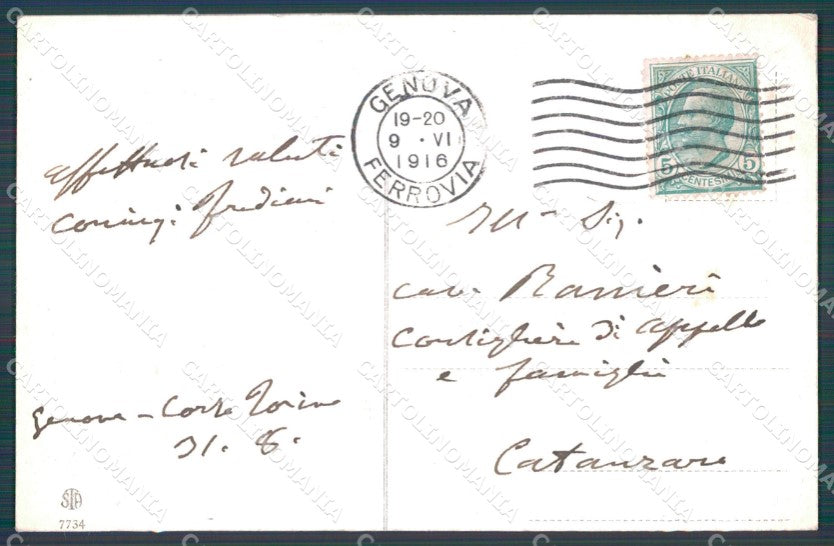 GENOVA
19-20
9 • VI
1916
FERROVIA
POSTE ITALIANE
5 5
CENTESIMI
affettuosi saluti
coniugi Frediani
Genova - Corso Torino
31. 6.
Ill mo Sig.
cav. Ranieri
Consigliere di appello
e famiglia
Catanzaro
STA
7734
CARTOLINOMANIA